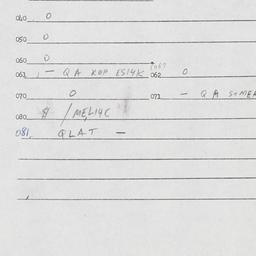 040 0
050 0
060 0
061 - QA KOP ESI4K 062 0
070 0 071 - QA SOMEA
080 8 / MELI4C
081 QLAT -